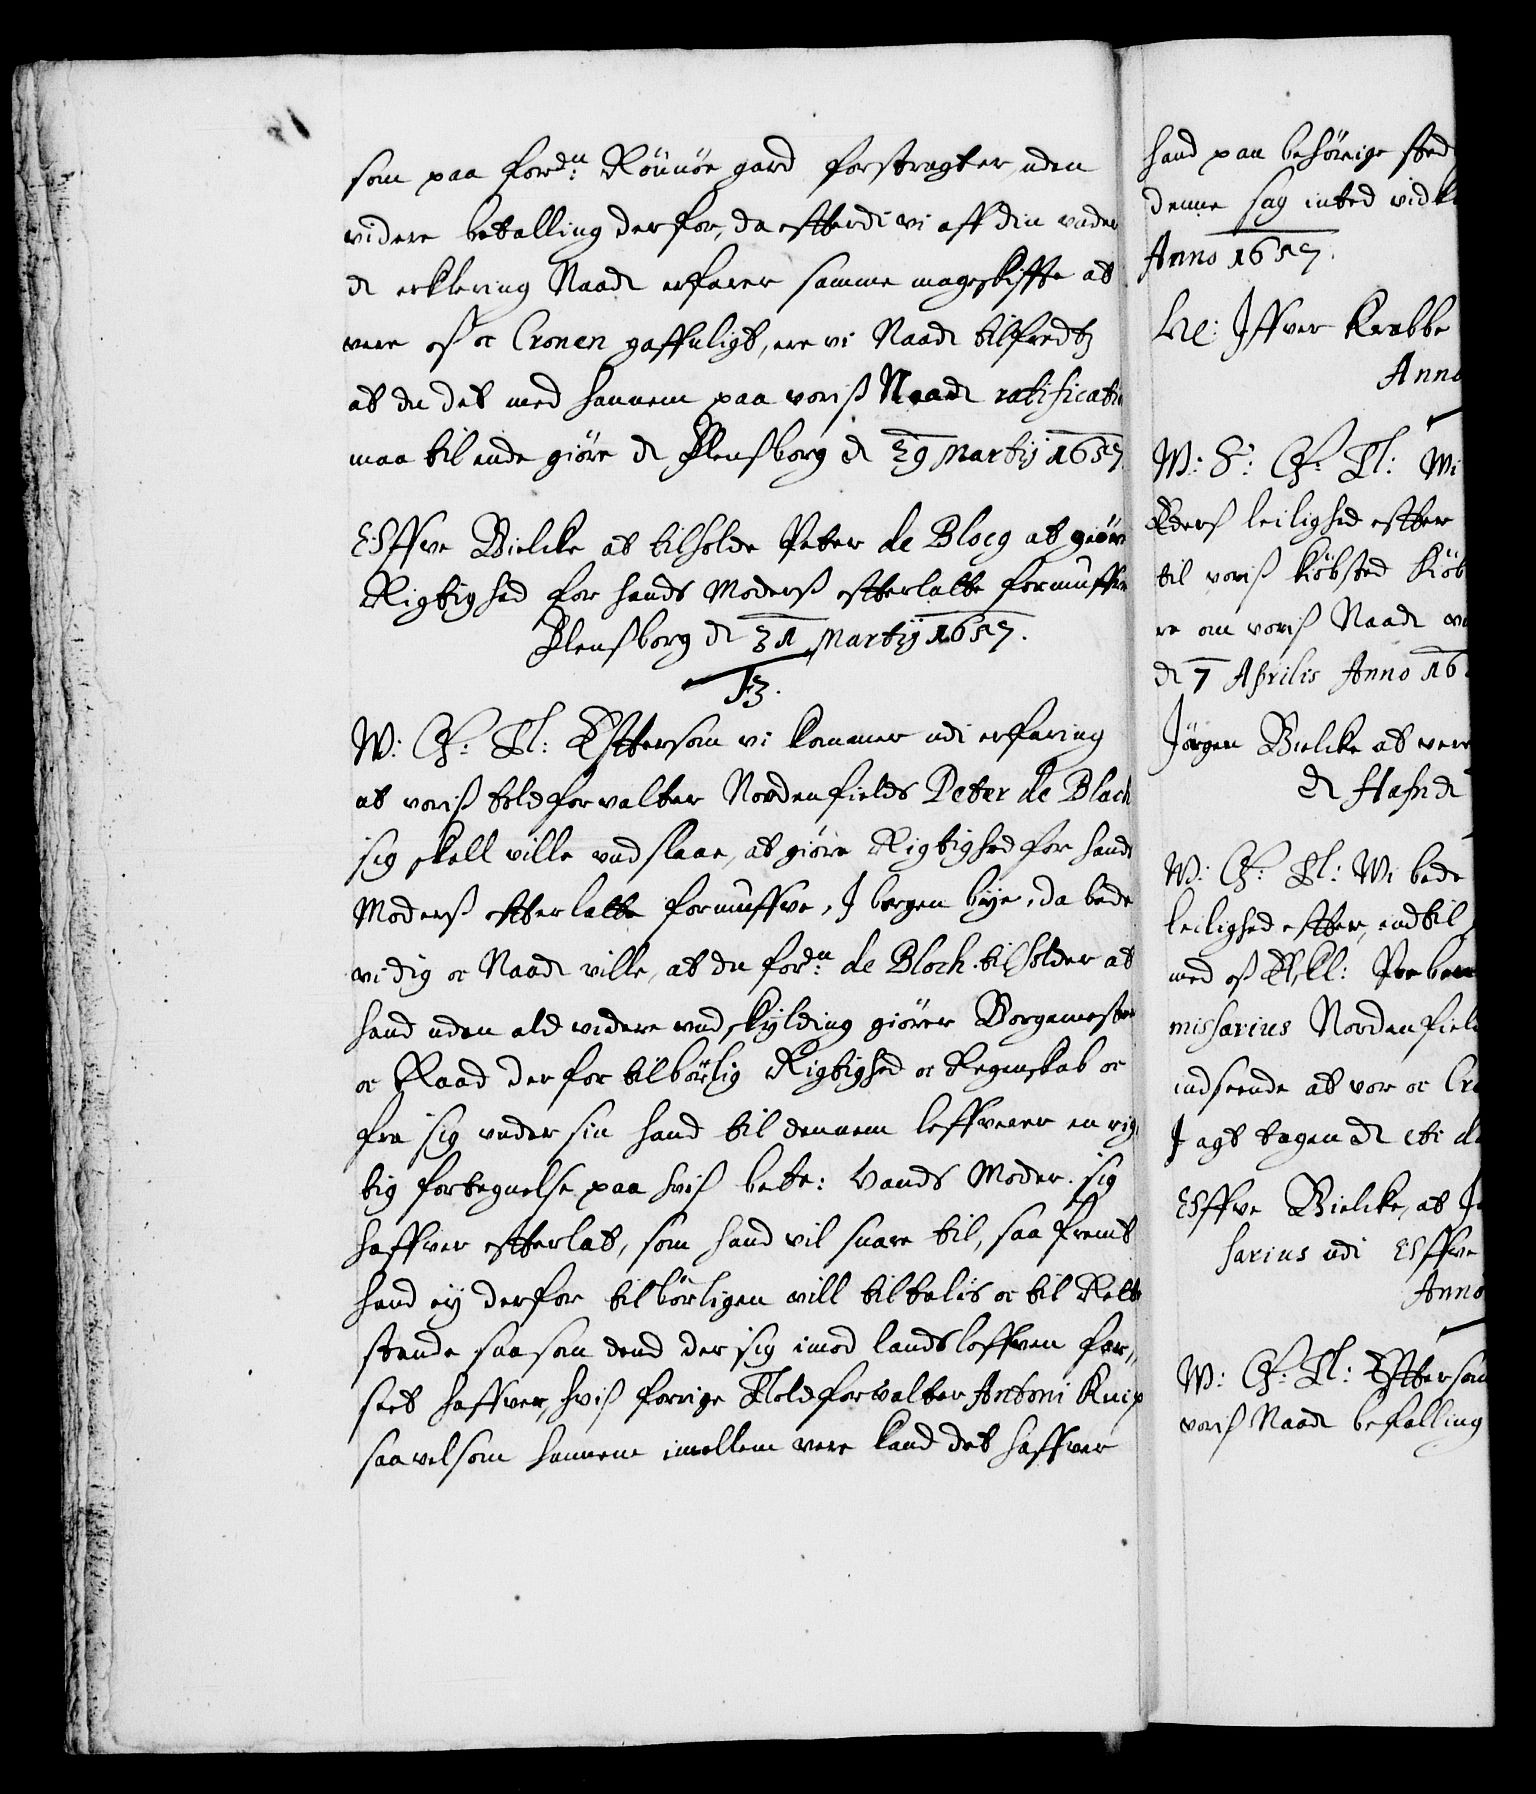 som paa fordn: Rönnöe gard forstragter, uden
videre betalling derfor, da efterdi vi aff din under
dt erklering Naadt erfarer samme mageskiffte at
vere oß oc Cronen gaffnligt, ere vi Naadt tilfredtz
at du det med hannem paa voriß Naadt ratificatio
maa til ende giöre dt Flensborg dt 29 Martij 1657
Offve Bielcke at tilholde Peter de Blocq at giöre
Rigtighed for hands Moderß effterlatte formuffve
Flensborg dt 31 Martij 1657.
F3.
W: G: T: Effttersom vi kommer udi erfaring
at voriß toldforvalter Nordenfields Peter de Block
sig skall ville undslaae, at giöre Rigtighed for hands
Moderß effterlatte formuffve, I bergen bye, da bede
vi dig oc Naadt ville, at du fordn: de Bloch tilholder at
hand uden ald videre undskylding giörer Borgemester
oc Raad derfor tilbörlig Rigtighed oc Regenskab oc
fra sig under sin hand til dennem leffverer en rig
tig fortegnelse paa hviß bete: hands Moder sig
haffver effterlat, som hand vil svare til, saa fremt
hand ey derfor tilbörligen vill tiltalis oc til Rette
stande saasom dend der sig imod landsloffven for„
seet haffver, hviß forrige Toldforvalter Antoni Knip
saavelsom hannem imellem vere kand det haffver
hand paa behörige sted
denne sag inted vidk
Anno 1657.
He: Iffver Krabbe
Anno
W: S: G: T: Wi
Ederß leilighed effter
til voriß kiöbsted Kiöb
re om voriß Naadt
dt 7 Aprilis Anno 16
Jörgen Bielcke at vere
dt Hafn dt
W: G: T: Wi bede
leilighed effter, indtil
med oß Elskl:
missarius Nordenfield
indseende at vor oc Cro
I agt tagen dt uti
Offve Bielcke, at
sarius udi Offve
Anno
W: G: T: Effttersom
voriß Naadt befalling